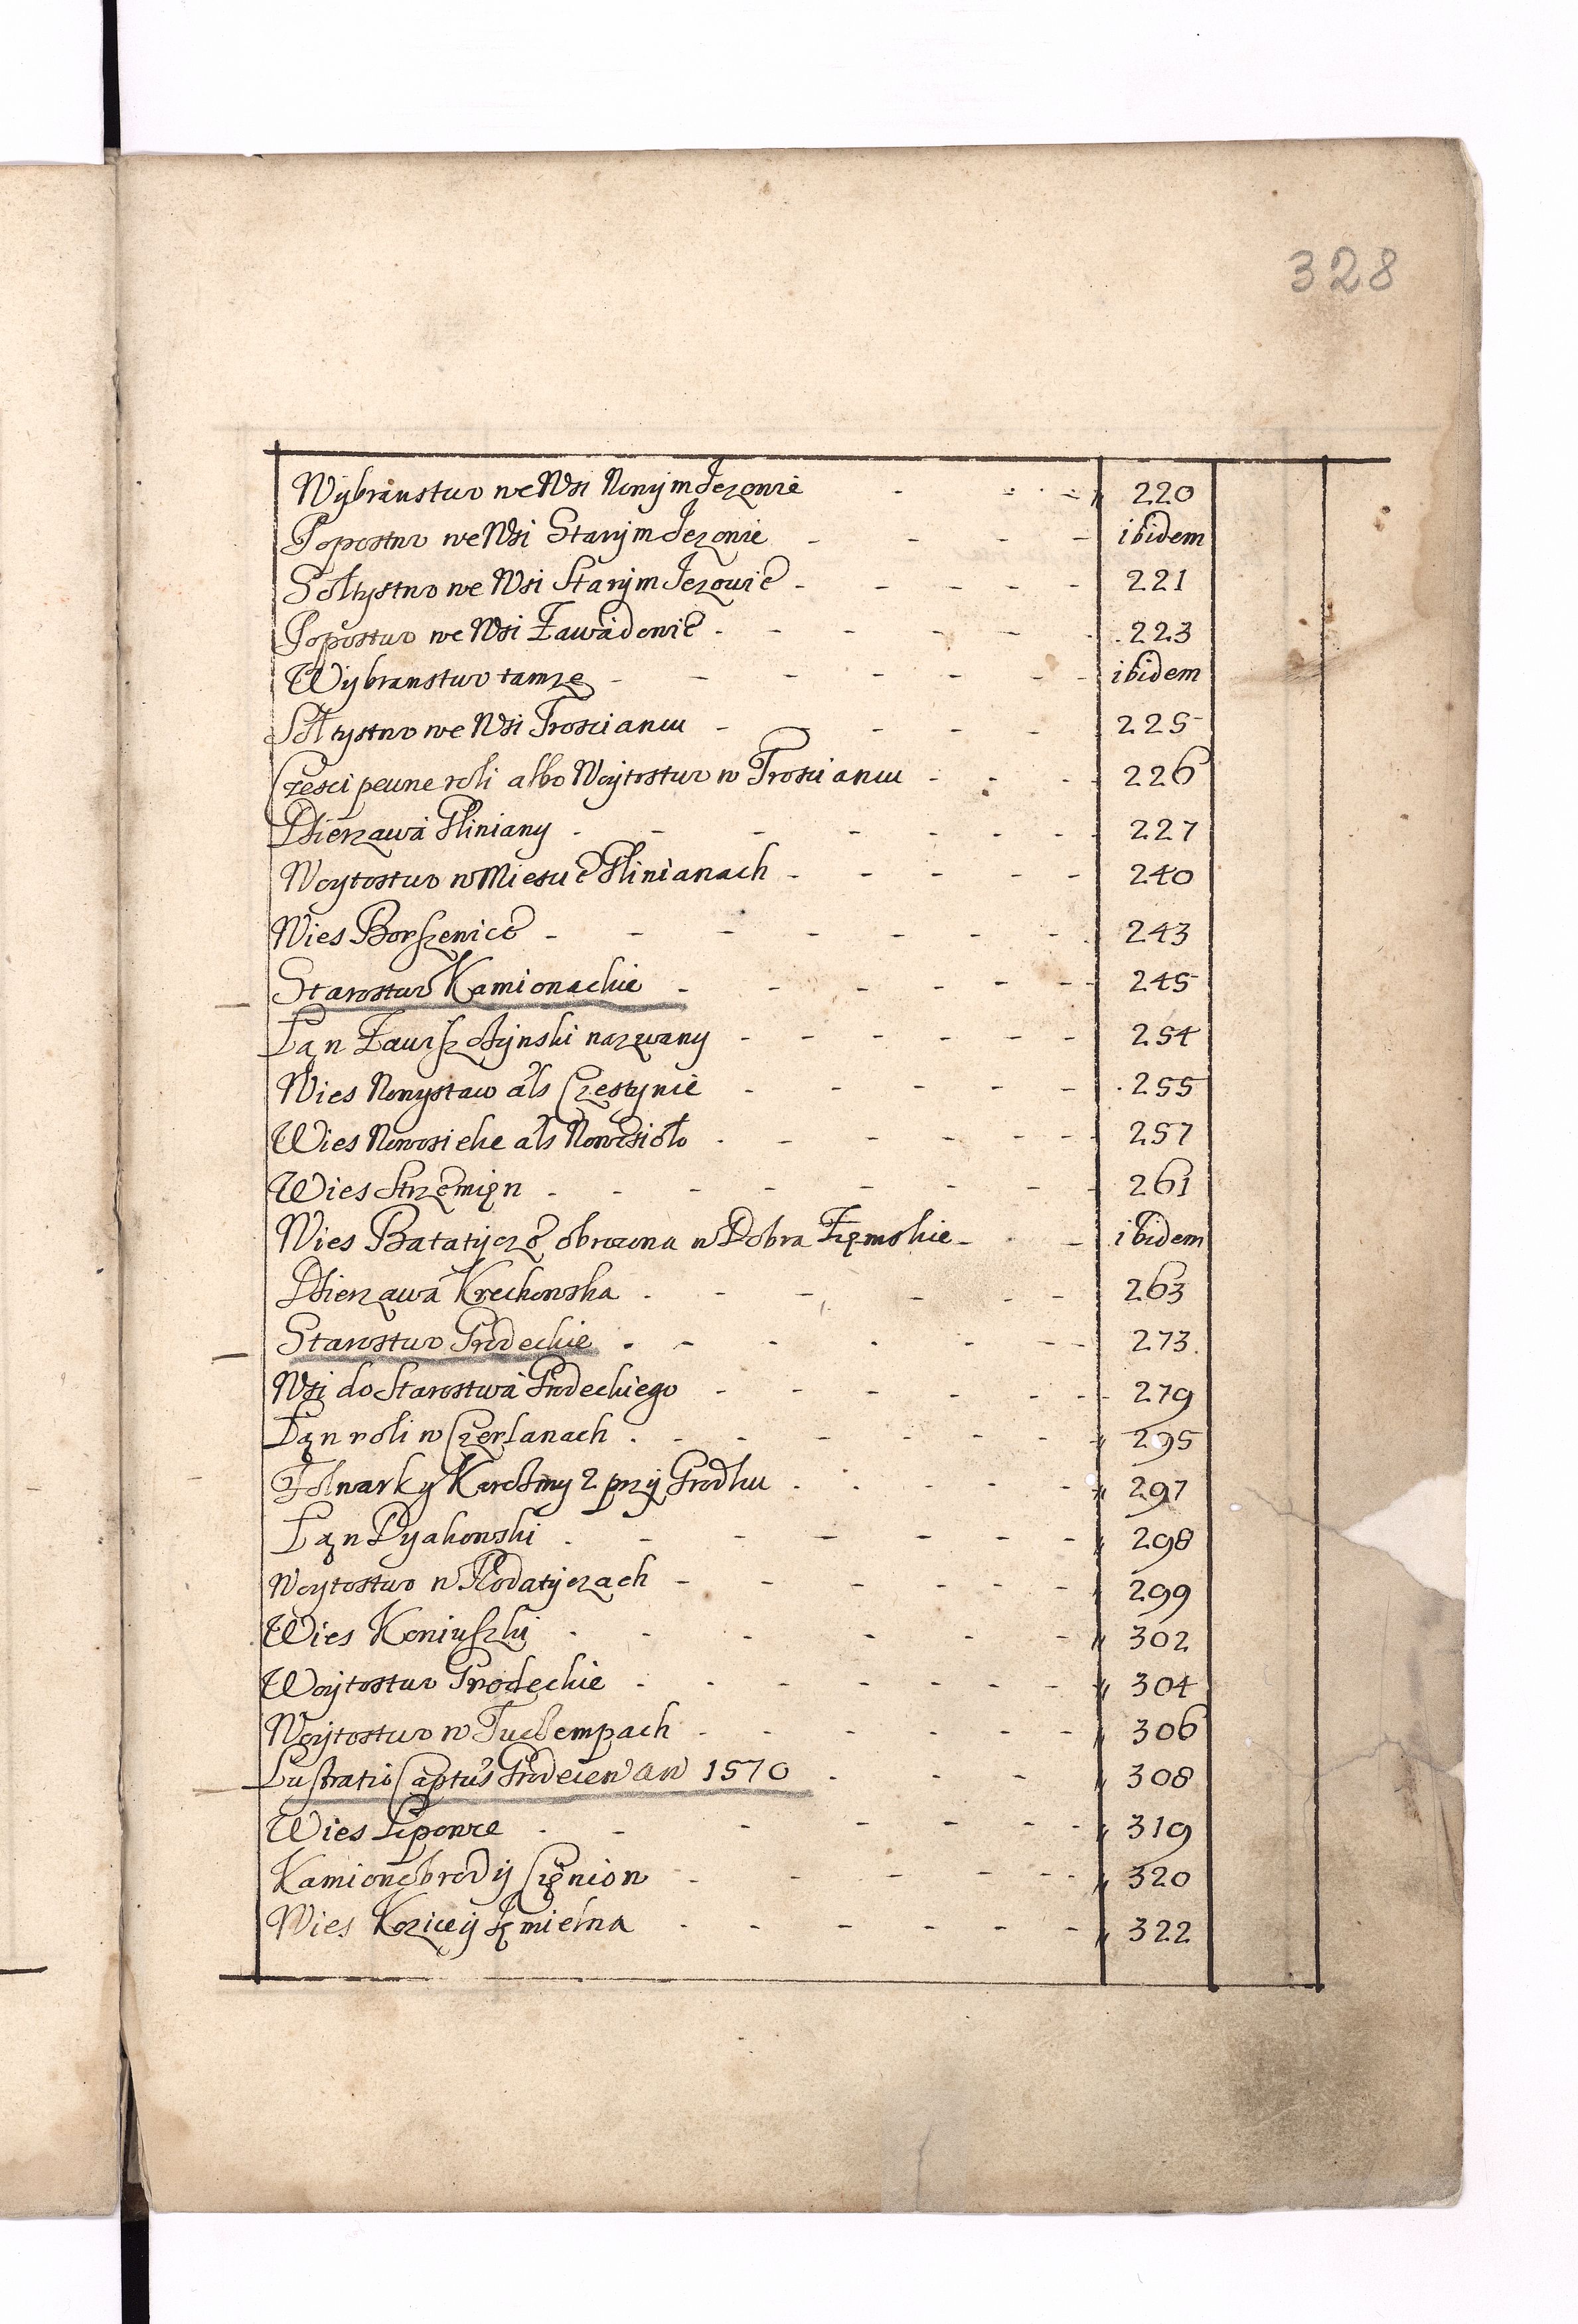 328
Wybranstwo we Wsi Nowym Jezowie 220
Popostwo we Wsi Starym Jezowie ibidem
Sołtystwo we Wsi Starym Jezowie 221
Popostwo we Wsi Zawadowie 223
Wybranstwo tamze ibidem
Sołtystwo we Wsi Trosciancu 225
Częsci pewne roli albo Woytostwo w Trosciancu 226
Dzierzawa Gliniany 227
Woytostwo w Miescie Glinianach 240
Wies Borszenice 243
Starostwo Kamionackie 245
Łan nazwany 254
Wies Nowystaw als Czestynie 255
Wies Nowosielce als Nowesioło 257
Wies Strzemień 261
Wies Batatycze obrocona w Dobra Ziemskie ibidem
Dzierzawa Krechowska 263
Starostwo Grodeckie 273.
Wsi do Starostwa Grodeckiego 279
Łan roli w Czerlanach 295
Folwark y Karczmy 2 przy Grodku 297
Łan Dyakowski 298
Woytostwo w Rodatyczach 299
Wies Koniuszki 302
Woytostwo Grodeckie 304
Woytostwo w Tuczempach 306
Lustratio Captus Grodecen an 1570 308
Wies Lipowce 319
Kamionobrody 320
Wies Kozice y 322